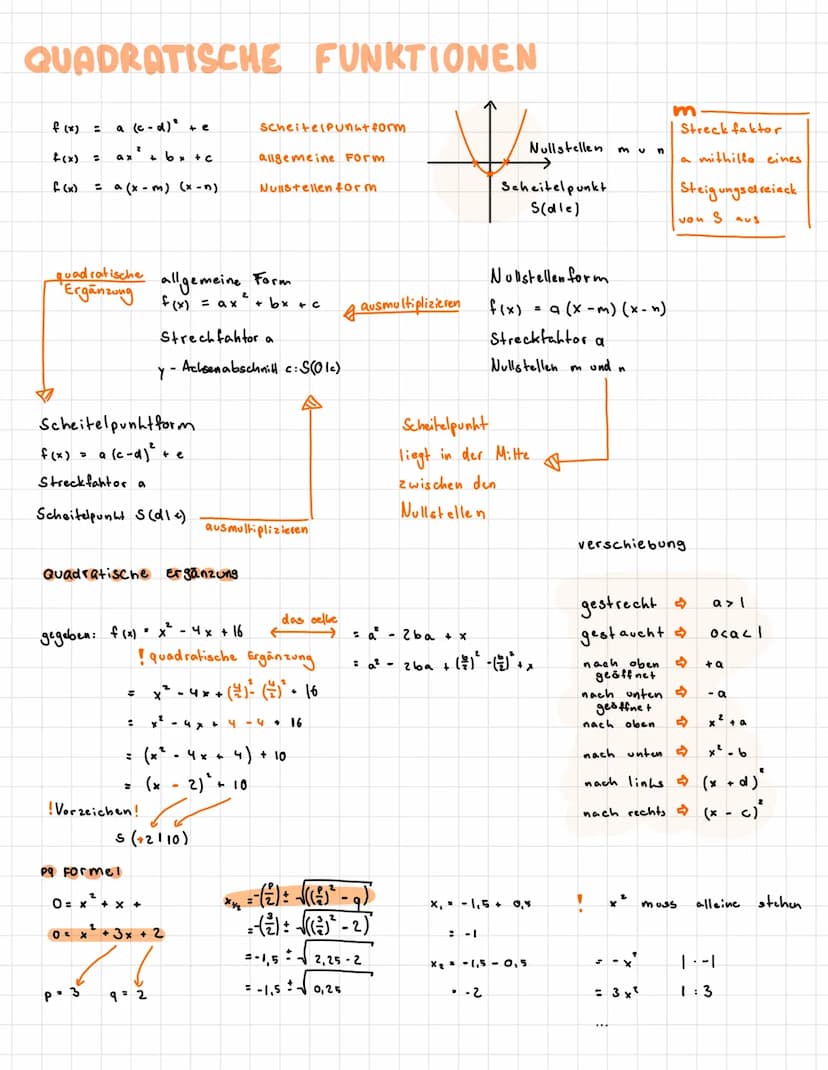 QUADRATISCHE FUNKTIONEN
f(x) = a (c-d)² + e Scheitelpunktform
f(x) = ax² + bx + c allgemeine Form
f(x) = a (x-m) (x-n) Nullstellenform
Nullstellen m u n
Scheitelpunkt
S(d|e)
m
Streckfaktor
a mithilfe eines
Steigungsdreieck
von S aus
quadratische
Ergänzung
allgemeine Form
f(x) = ax² + bx + c
Streckfaktor a
y - Achsenabschnitt c: S(0|c)
ausmultiplizieren
Nullstellenform
f(x) = a (x-m) (x-n)
Streckfaktor a
Nullstellen m und n
Scheitelpunktform
f(x) = a (c-d)² + e
Streckfaktor a
Scheitelpunkt S(d|e)
ausmultiplizieren
Scheitelpunkt
liegt in der Mitte
zwischen den
Nullstellen
Quadratische Ergänzung
gegeben: f(x) = x² - 4x + 16
das selbe
= a² - 2ba + x
! quadratische Ergänzung
= a² - 2ba + (b/2)² - (b/2)² + x
= x² - 4x + (4/2)² - (4/2)² + 16
= x² - 4x + 4 - 4 + 16
= (x² - 4x + 4) + 10
= (x - 2)² + 10
! Vorzeichen!
S (+2|10)
verschiebung
gestrecht ⇒ a > 1
gestaucht ⇒ 0<a<1
nach oben geöffnet ⇒ +a
nach unten geöffnet ⇒ -a
nach oben ⇒ x² + a
nach unten ⇒ x² - b
nach links ⇒ (x + d)²
nach rechts ⇒ (x - c)²
pq Formel
0 = x² + x +
0 = x² + 3x + 2
p = 3 q = 2
x₁/₂ = -(p/2) ± √((p/2)² - q)
= -(3/2) ± √((3/2)² - 2)
= -1,5 ± √2,25 - 2
= -1,5 ± √0,25
x₁ = -1,5 + 0,5
= -1
x₂ = -1,5 - 0,5
= -2
! x² muss alleine stehen
= -x² | · -1
= 3x² | : 3
...